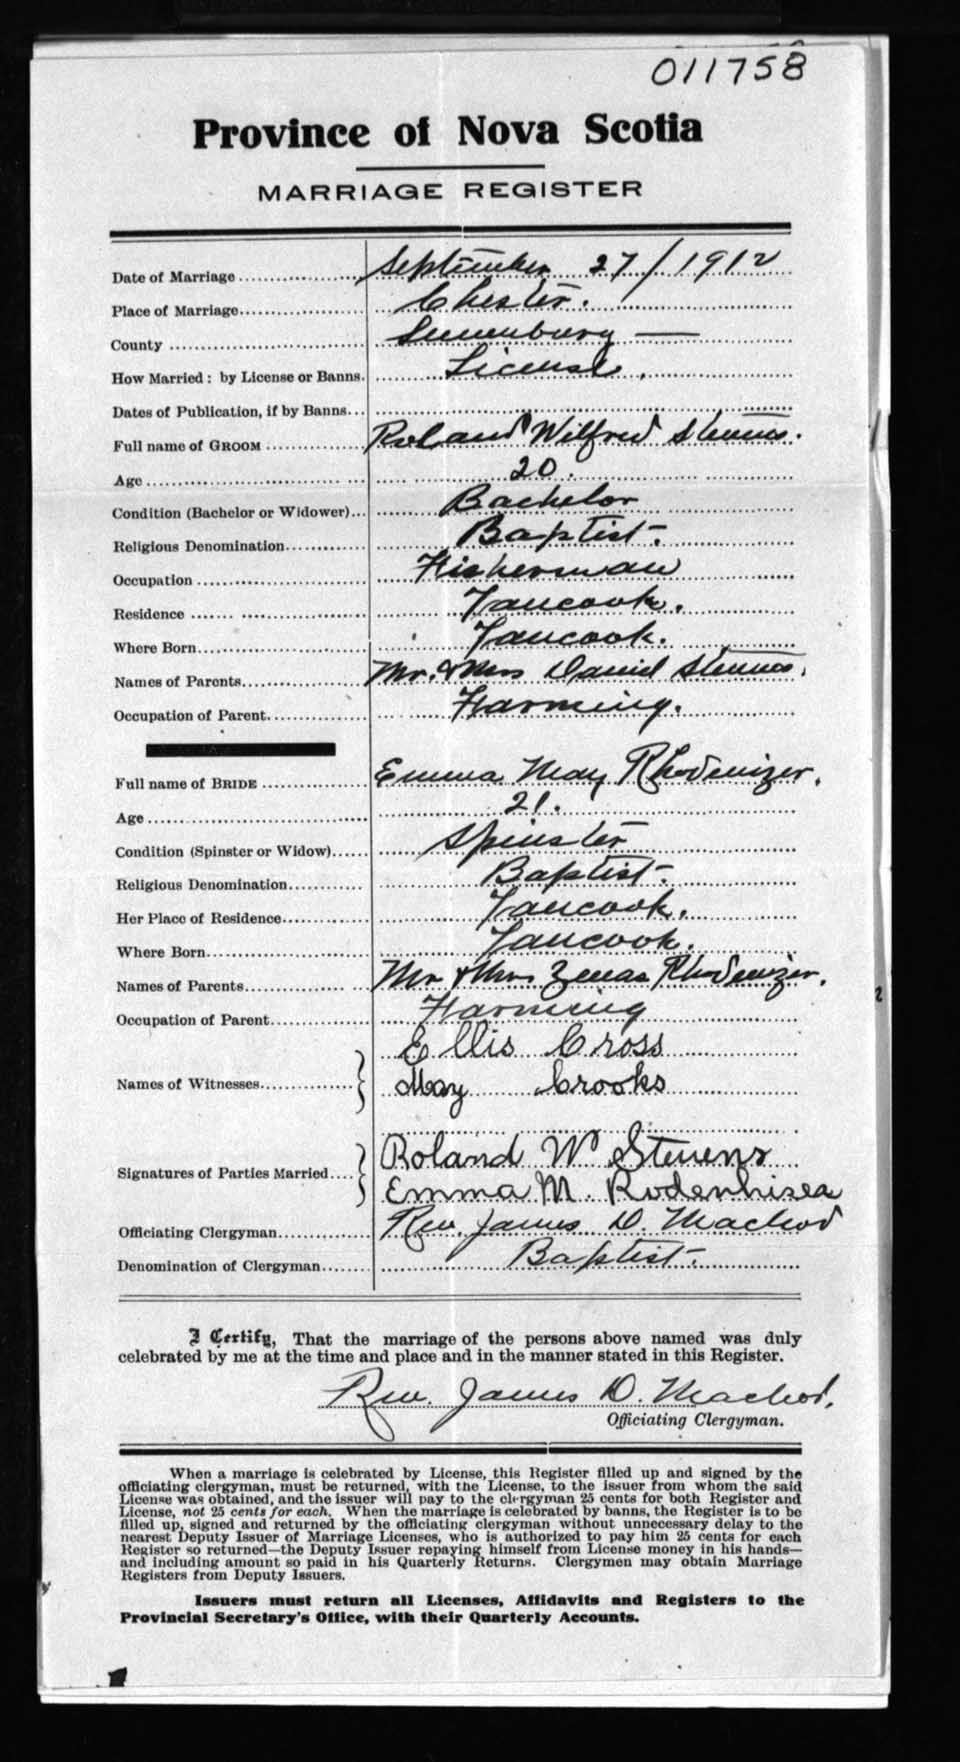 011758
Province of Nova Scotia
MARRIAGE REGISTER
Date of Marriage September 27/1912
Place of Marriage Chester.
County Lunenburg —
How Married: by License or Banns. License.
Dates of Publication, if by Banns
Full name of GROOM Roland Wilfred Stevens.
Age 20.
Condition (Bachelor or Widower) Bachelor
Religious Denomination Baptist.
Occupation Fisherman
Residence Tancook.
Where Born Tancook.
Names of Parents Mr. & Mrs David Stevens.
Occupation of Parent Farming.
Full name of BRIDE Emma May Rhodenizer.
Age 21.
Condition (Spinster or Widow) Spinster
Religious Denomination Baptist.
Her Place of Residence Tancook.
Where Born Tancook.
Names of Parents Mr & Mrs Zenas Rhodenizer.
Occupation of Parent Farming
Ellis Cross
Names of Witnesses May Crooks
Roland W Stevens
Signatures of Parties Married
Emma M Rodenhisea
Officiating Clergyman Rev. James D. MacLeod
Denomination of Clergyman Baptist.
I Certify, That the marriage of the persons above named was duly
celebrated by me at the time and place and in the manner stated in this Register.
Rev. James D. MacLeod.
Officiating Clergyman.
When a marriage is celebrated by License, this Register filled up and signed by the
officiating clergyman, must be returned, with the License, to the issuer from whom the said
License was obtained, and the issuer will pay to the clergyman 25 cents for both Register and
License, not 25 cents for each. When the marriage is celebrated by banns, the Register is to be
filled up, signed and returned by the officiating clergyman without unnecessary delay to the
nearest Deputy Issuer of Marriage Licenses, who is authorized to pay him 25 cents for each
Register so returned—the Deputy Issuer repaying himself from License money in his hands—
and including amount so paid in his Quarterly Returns. Clergymen may obtain Marriage
Registers from Deputy Issuers.
Issuers must return all Licenses, Affidavits and Registers to the
Provincial Secretary's Office, with their Quarterly Accounts.